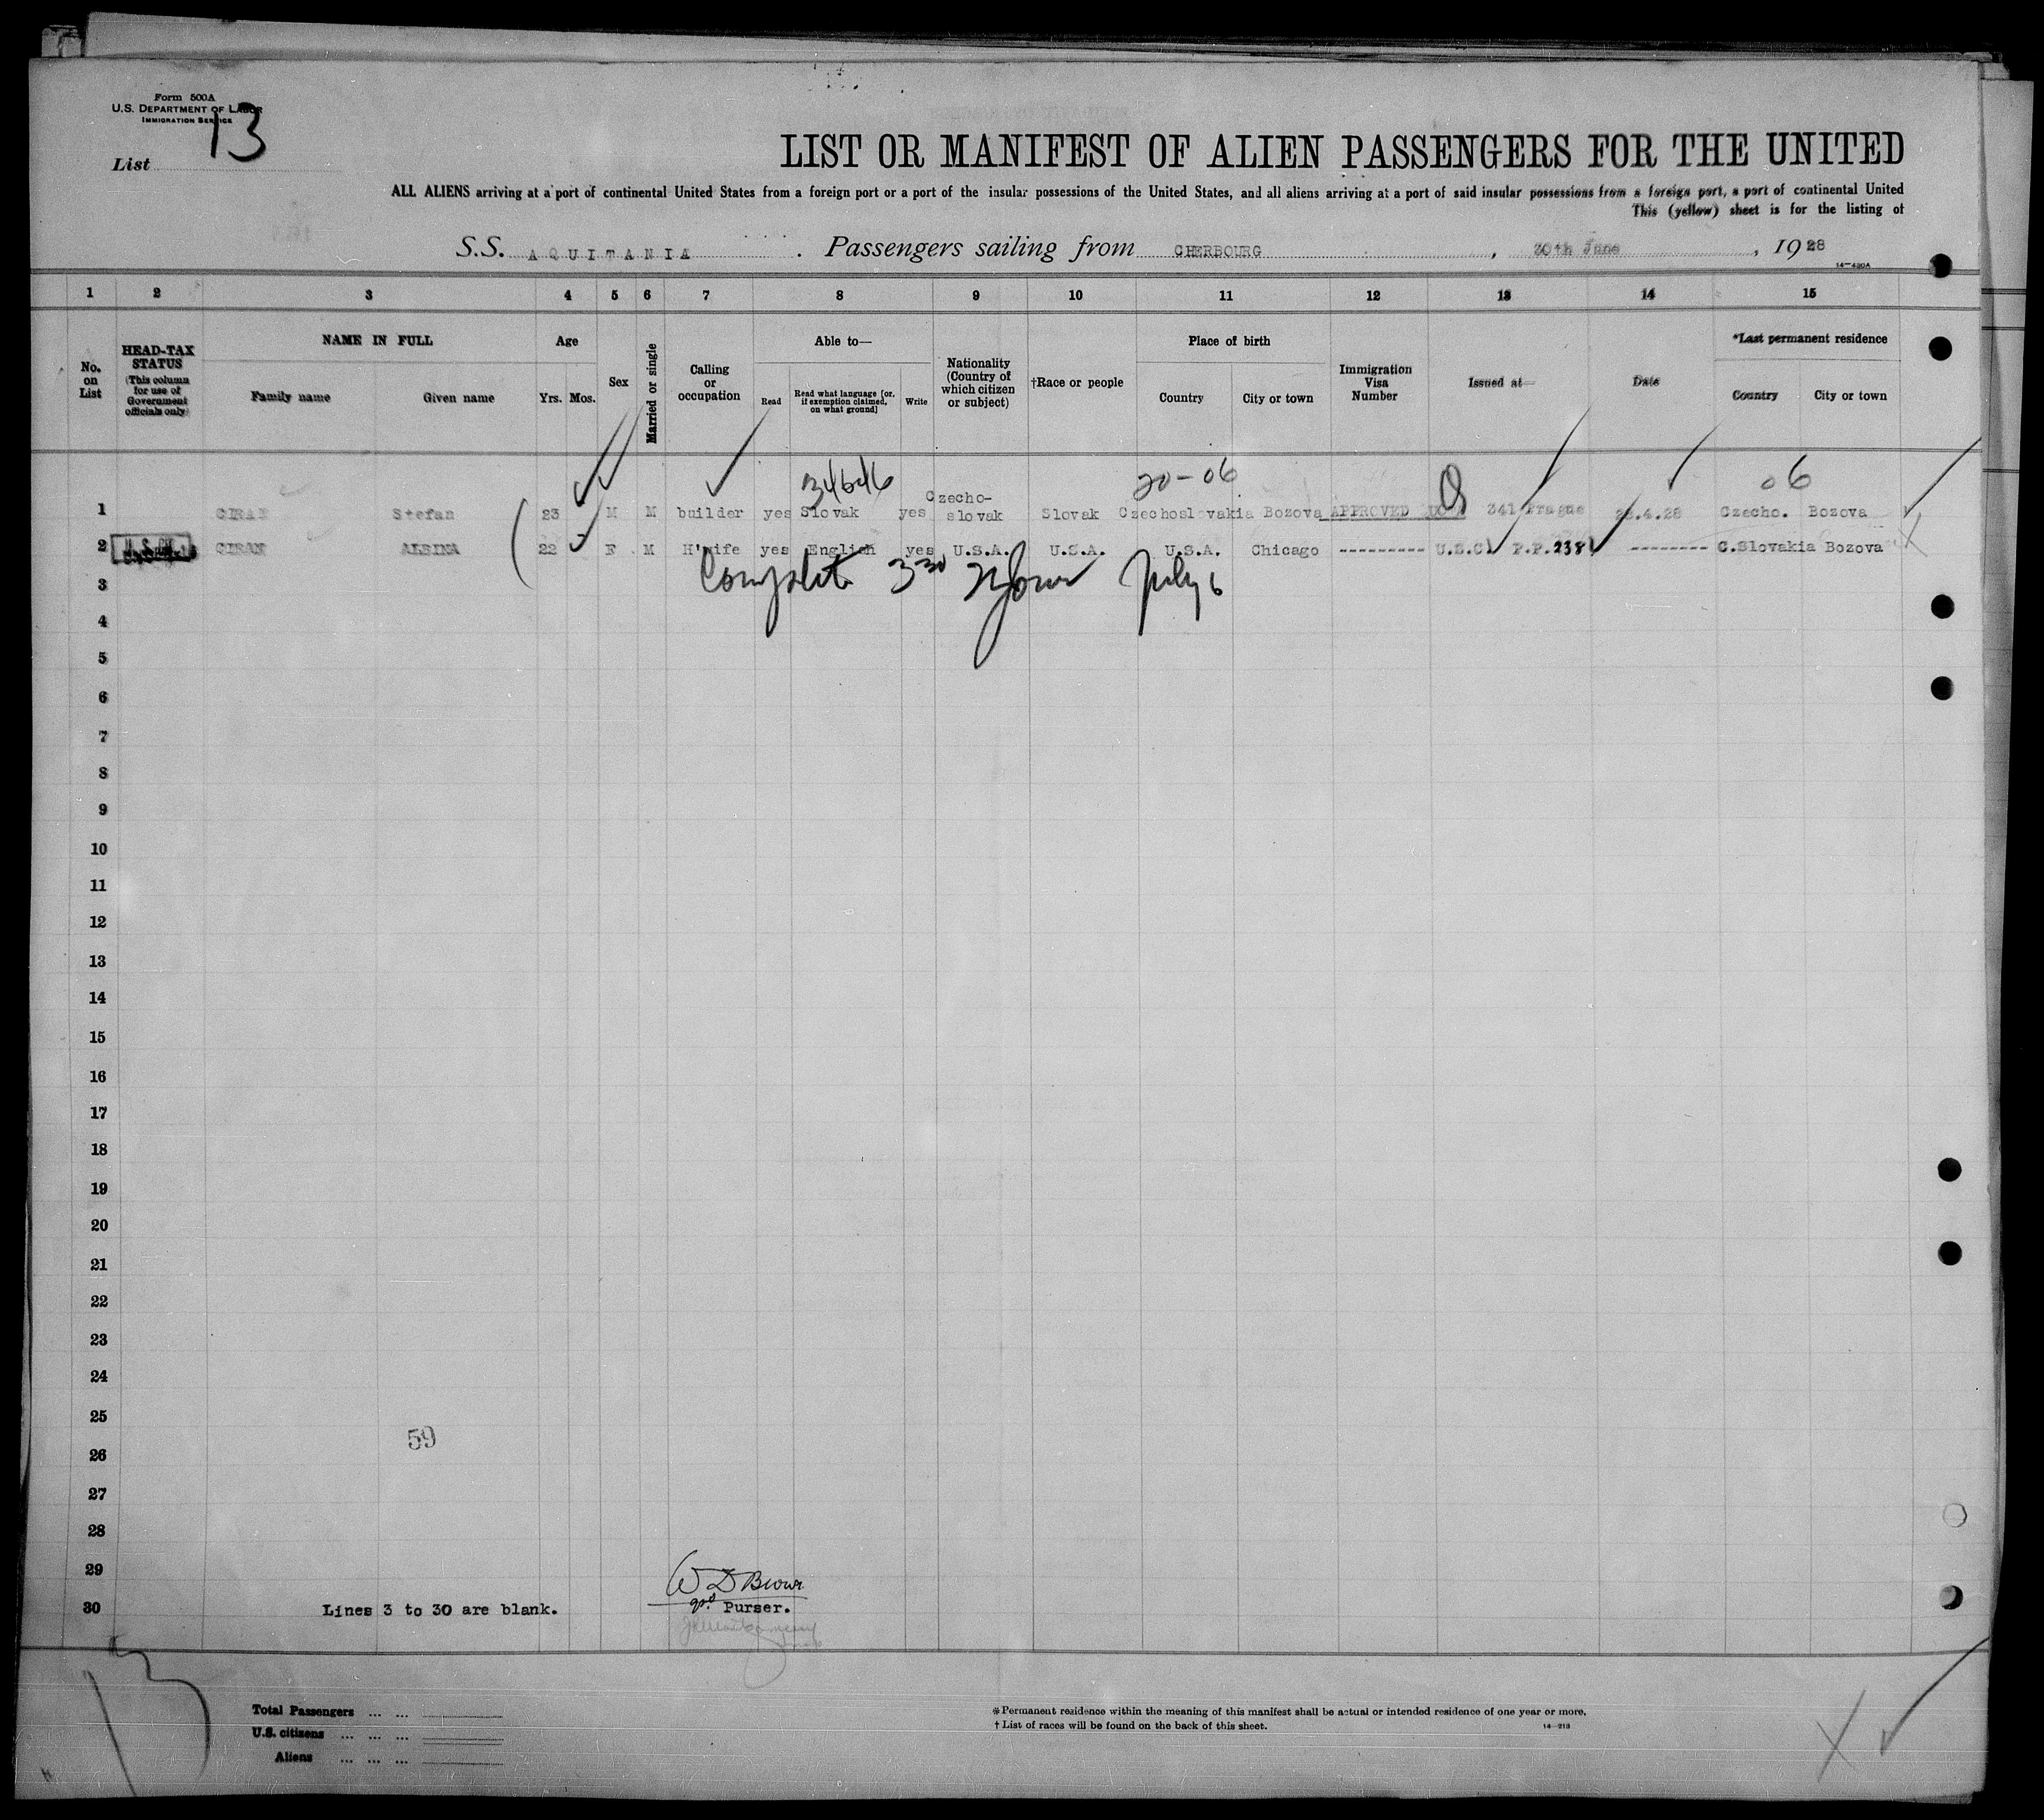 Form 500A
U.S. DEPARTMENT OF LABOR
IMMIGRATION SERVICE
List 13
LIST OR MANIFEST OF ALIEN PASSENGERS FOR THE UNITED
ALL ALIENS arriving at a port of continental United States from a foreign port or a port of the insular possessions of the United States, and all aliens arriving at a port of said insular possessions from a foreign port, a port of continental United
This (yellow) sheet is for the listing of
S.S. AQUITANIA . Passengers sailing from CHERBOURG , 30th June , 1928
14-430A
1 2 3 4 5 6 7 8 9 10 11 12 13 14 15
No. on List
HEAD-TAX STATUS (This column for use of Government officials only)
NAME IN FULL
Family name Given name
Age
Yrs. Mos.
Sex
Married or single
Calling or occupation
Able to—
Read
Read what language [or, if exemption claimed, on what ground]
Write
Nationality (Country of which citizen or subject)
†Race or people
Place of birth
Country City or town
Immigration Visa Number
Issued at—
Date
*Last permanent residence
Country City or town
20-06 06
1 CIRAN Stefan 23 M M builder yes Slovak yes Czecho-slovak Slovak Czechoslovakia Bozova APPROVED 341 Prague .4.28 Czecho. Bozova
2 CIRAN ALBINA 22 F M H'wife yes English yes U.S.A. U.S.A. U.S.A. Chicago --------- U.S.C. P.P.238 -------- C.Slovakia Bozova
3
July 6
4
5
6
7
8
9
10
11
12
13
14
15
16
17
18
19
20
21
22
23
24
25
59
26
27
28
29
W D Brown
30 Lines 3 to 30 are blank. Purser.
13
Total Passengers ... ...
U.S. citizens ... ... ...
Aliens ... ... ...
*Permanent residence within the meaning of this manifest shall be actual or intended residence of one year or more.
† List of races will be found on the back of this sheet.
14-213